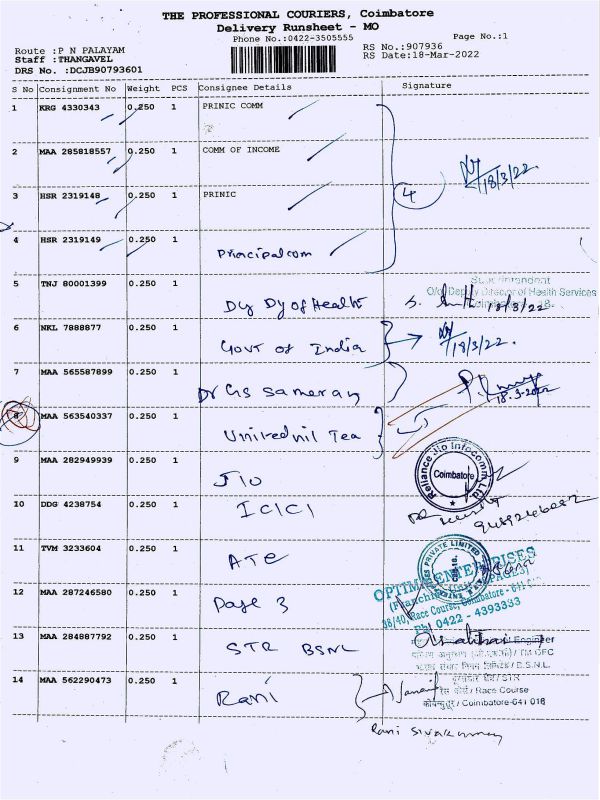 THE PROFESSIONAL COURIERS, Coimbatore
Delivery Runsheet - MO
Phone No.:0422-3505555
Page No.:1
Route :P N PALAYAM
Staff :THANGAVEL
DRS No. :DCJB90793601
RS No.:907936
RS Date:18-Mar-2022
S No Consignment No Weight PCS Consignee Details Signature
1 KRG 4330343 0.250 1 PRINIC COMM
2 MAA 285818557 0.250 1 COMM OF INCOME
18/3/22
3 HSR 2319148 0.250 1 PRINIC
4
4 HSR 2319149 0.250 1 Principal com
5 TNJ 80001399 0.250 1 Dy Dy of Health
Superintendent
O/o Deputy Director of Health Services
Coimbatore -18-
18/3/22
6 NKL 7888877 0.250 1 Govt of India
18/3/22.
7 MAA 565587899 0.250 1 Dr GS Sameran
18.3.2022
8 MAA 563540337 0.250 1 Tea
9 MAA 282949939 0.250 1 JIO
Reliance Jio Infocomm Ltd
Coimbatore
10 DDG 4238754 0.250 1 ICICI
11 TVM 3233604 0.250 1 ATE
PRIVATE LIMITED
12 MAA 287246580 0.250 1 Page 3
OPTIM ENTERPRISES
(Franchisee PAGE3)
38/40, Race Course, Coimbatore - 641
Ph: 0422 - 4393333
13 MAA 284887792 0.250 1 STR BSNL
Engineer
/ TM CFC
भारत संचार निगम लिमिटेड / B.S.N.L.
/ STR
रेस कोर्स / Race Course
/ Coimbatore-641 018
14 MAA 562290473 0.250 1 Rani
Rani Sivakumar